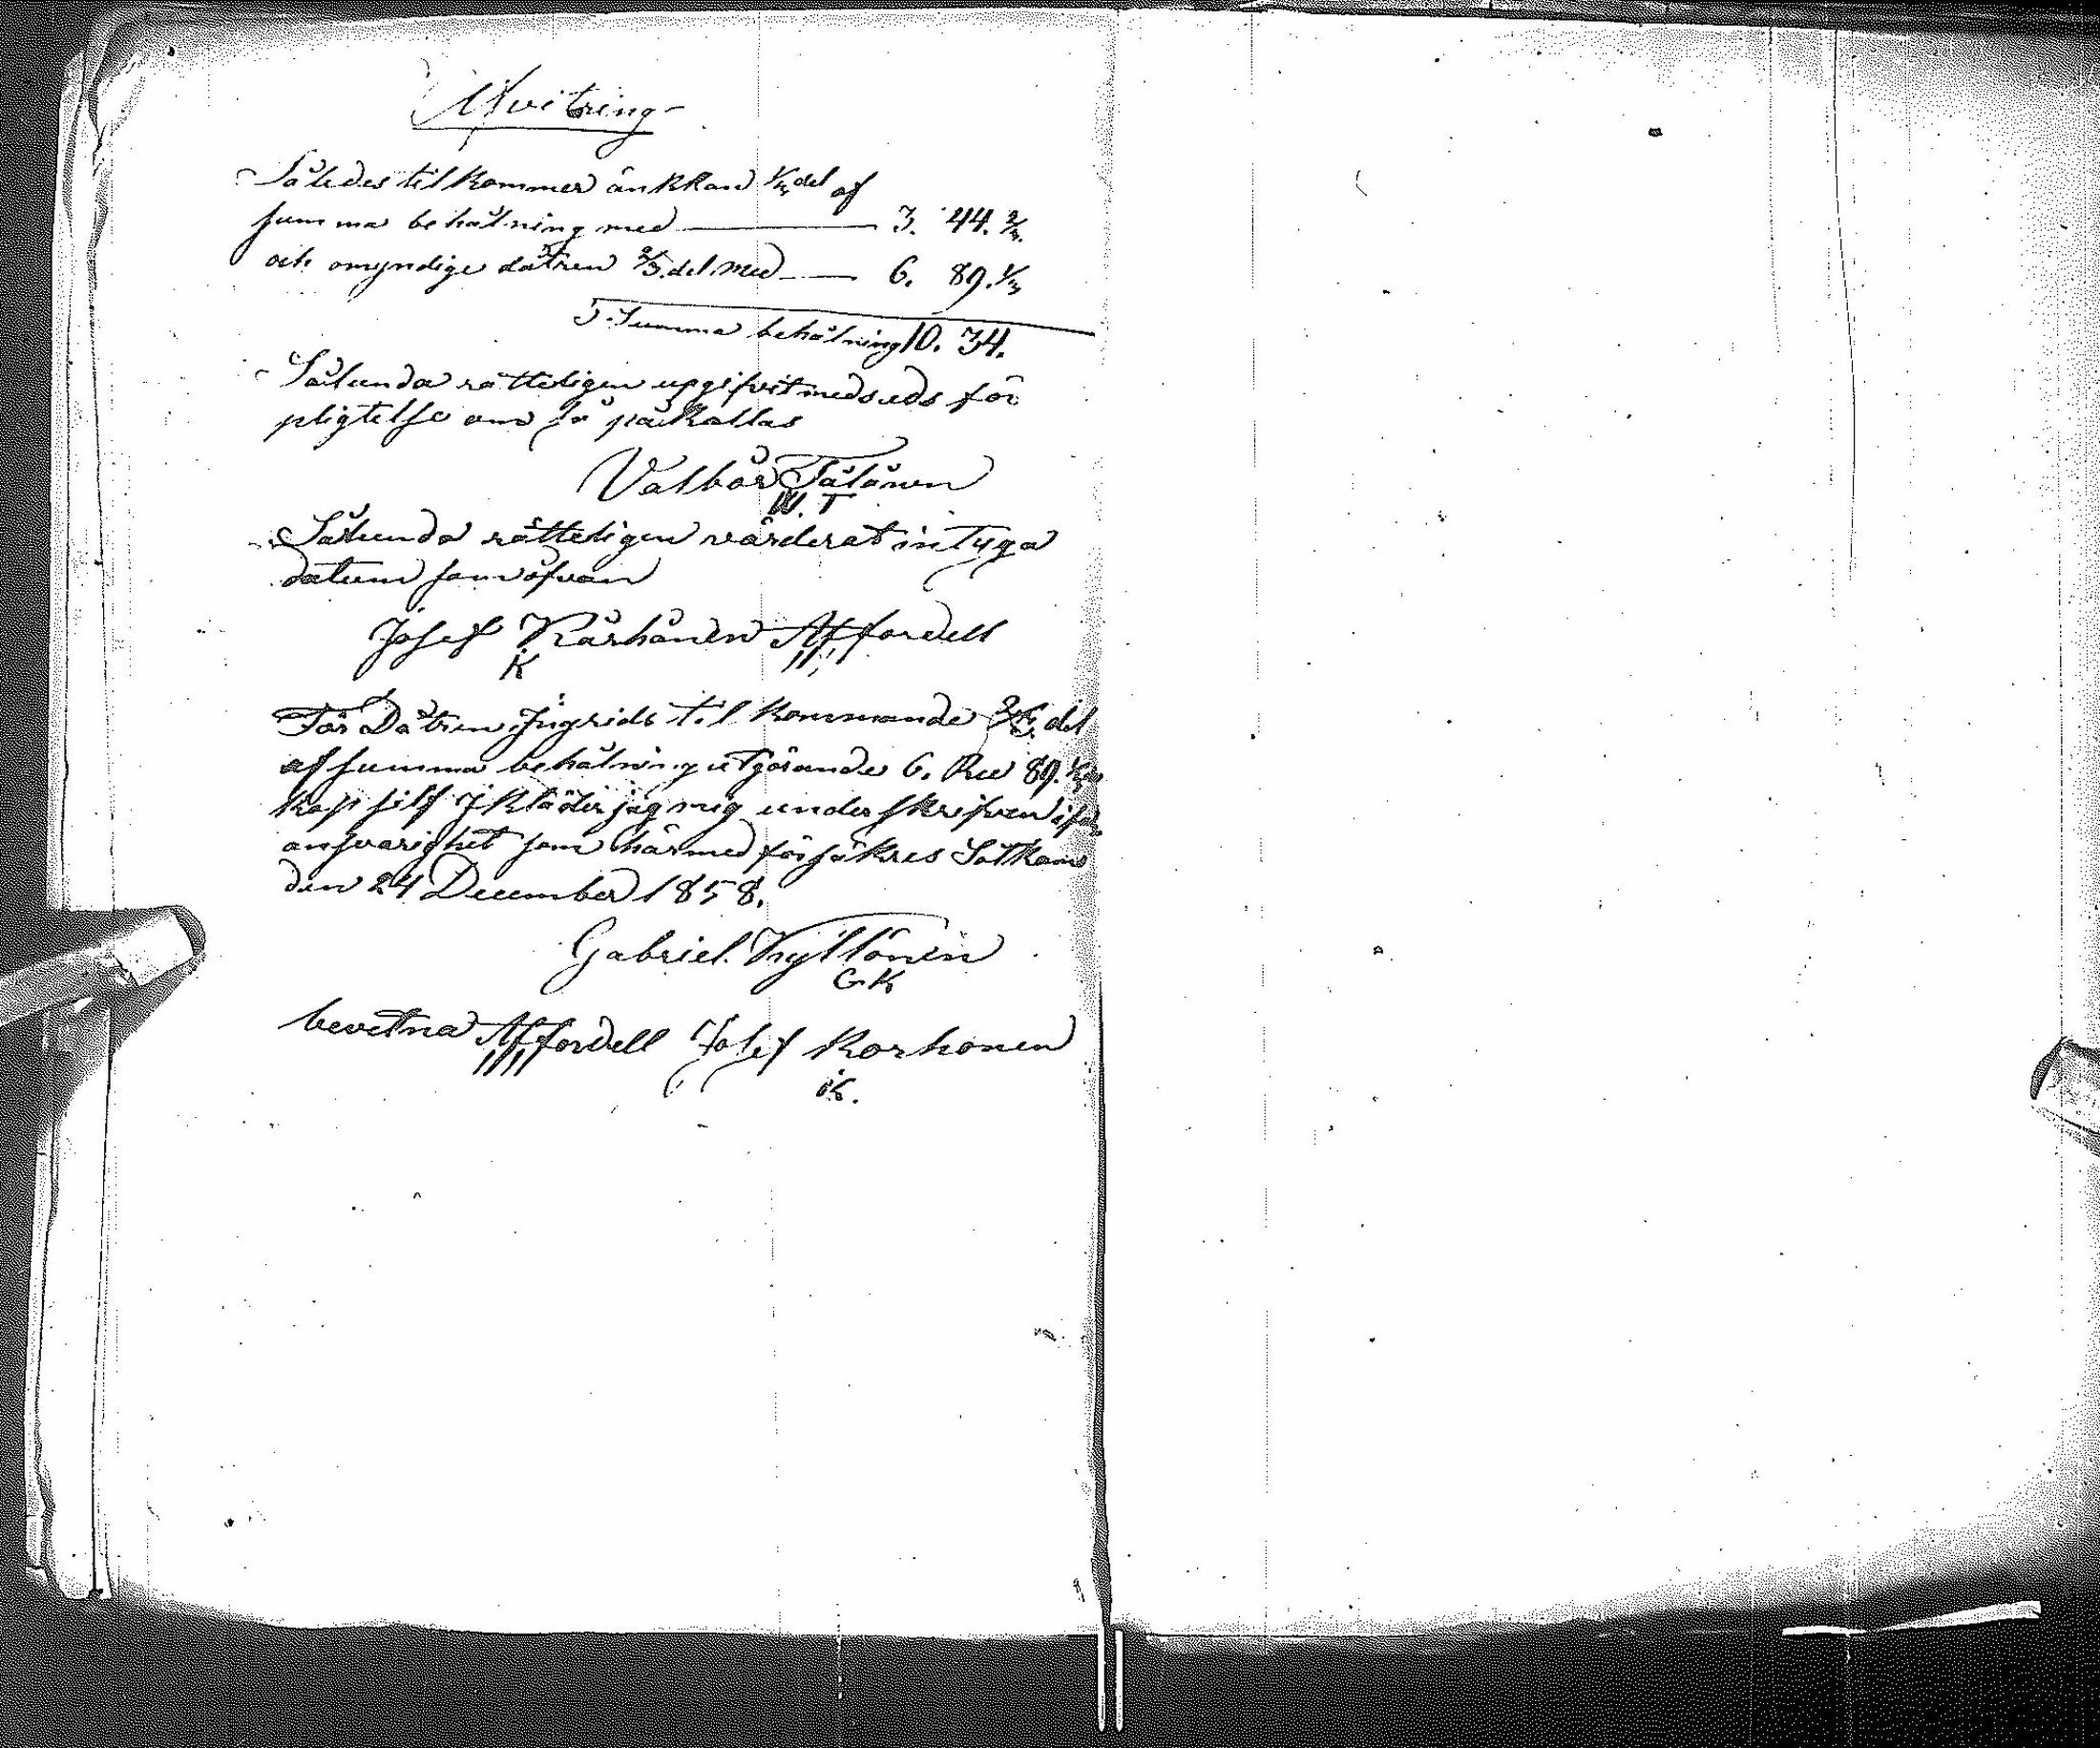 Utvitring
Således tilkommer änkkan 1/3 del af
summa behålning med 3. 44. 2/3.
och omyndige dåtren 2/3. del. med 6. 89. 1/3
S. Summa behålning 10. 34.
Sålunda rätteligen upgifvit meds eds för
pligtelse om så påkallas
Valbår Tålånen
W. T
Sålunda rätteligen värderat intyga
datum som åfvan
Josef Kårhånen Af fordell
K
För Dåtren Ingrids til kommande 2/3. del
af summa behålning utgörande 6. Ru 89. 1/3
kop silf Ikläder jag mig underskrifven
ansvarighet som härmed försäkres Sotkamo
den 24 December 1858.
Gabriel Kyllönen
G. K
bevitna Af fordell Josef Korhonen
K.